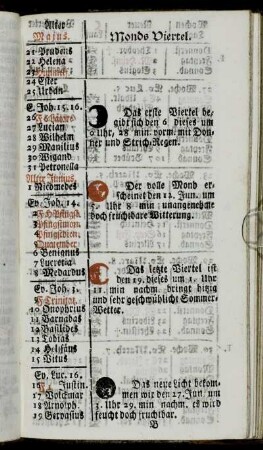 Alter
Majus.
21 Prudens
22 Helena
24 Ester
25 Urban
E. Joh. 15. 16.
27 Lucian
28 Wilhelm
29 Manilius
30 Wigand
31 Petronella
Alter Junius.
1 Nicomedes
Ev. Joh. 14.
Quatember
6 Benignus
7 Lucretia
8 Medardus
Ev. Joh. 3.
10 Onophrius
11 Barnabas
12 Basilides
13 Tobias
14 Helisäus
15 Vitus
Ev. Luc. 16.
16 Justin.
17 Volckmar
18 Arnolph.
19 Gervasius
Monds Viertel.
Das erste Viertel be-
gibt sich den 6 dieses um
0 Uhr, 28 min. vorm. mit Don-
ner und Strich-Regen.
Der volle Mond er-
scheinet den 12. Jun. um
5. Uhr 8 min unangenehme
doch fruchtbare Witterung.
Das letzte Viertel ist
den 19. dieses um 1. Uhr
11. min nachm. bringt hitzig
und sehr geschwühlicht Sommer-
Wetter.
Das neue Licht bekom-
men wir den 27. Jun. um
3. Uhr 29. min nachm. es wird
feucht doch fruchtbar.
B